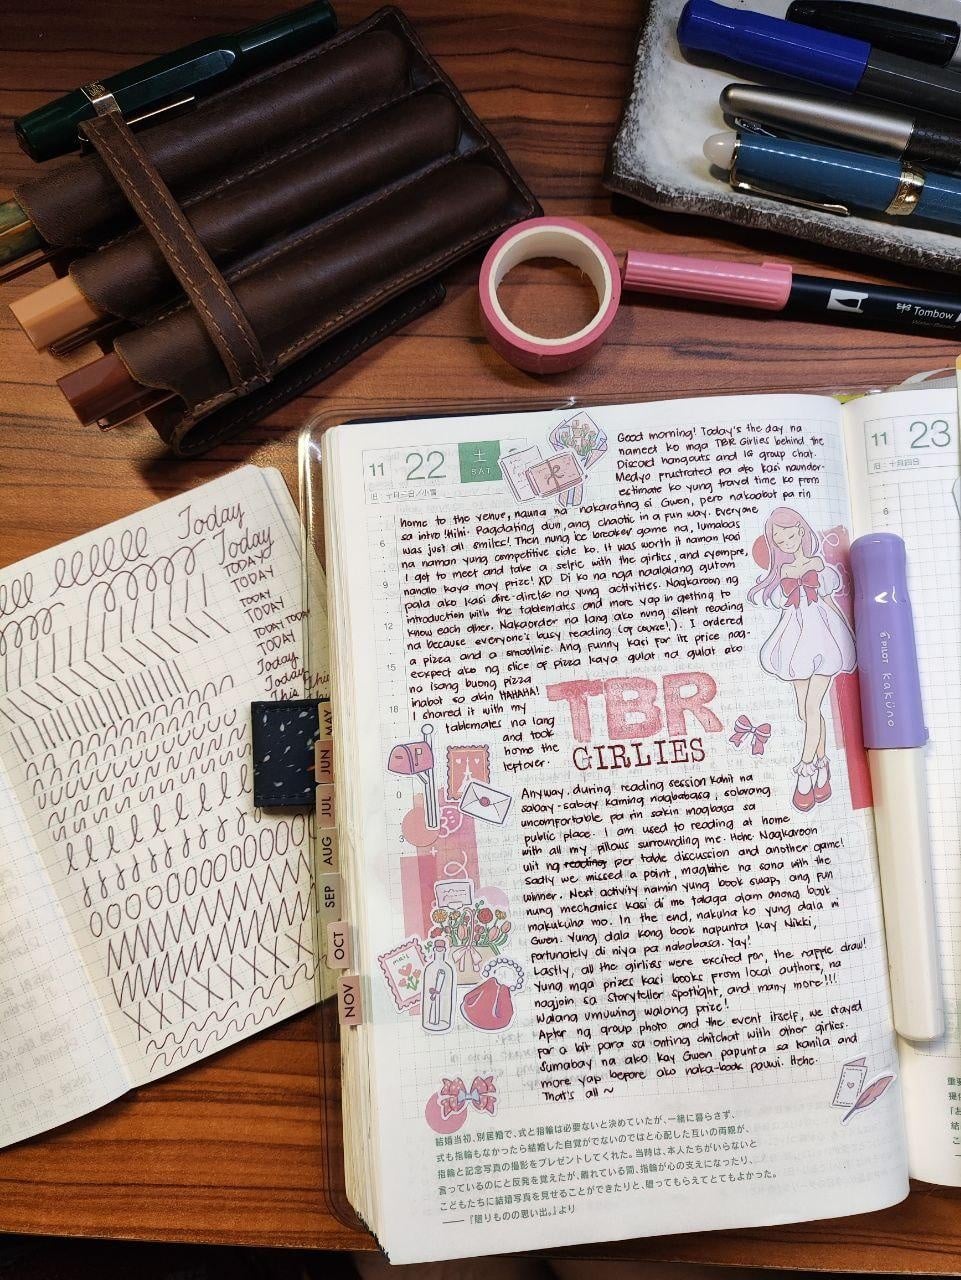 Tombow
11 22 土 SAT
旧:十月三日/小雪
11 23
旧:十月四日
Good morning! Today's the day na
nameet ko mga TBR Girlies behind the
Discord hangouts and IG group chat.
Medyo frustrated pa ako kasi naunder-
estimate ko yung travel time ko from
home to the venue, nauna na nakarating si Gwen, pero nakaabot pa rin
sa intro! Hihi. Pagdating dun, ang chaotic in a fun way. Everyone
was just all smiles! Then nung ice breaker game na, lumabas
na naman yung competitive side ko. It was worth it naman kasi
I got to meet and take a selfie with the girlies, and syempre,
nanalo kaya may prize! XD Di ko na nga naalalang gutom
pala ako kasi dire-diretso na yung activities. Nagkaroon ng
introduction with the tablemates and more yap in getting to
know each other. Nakaorder na lang ako nung silent reading
na because everyone's busy reading (of course!). I ordered
a pizza and a smoothie. Ang funny kasi for its price nag-
eexpect ako ng slice of pizza kaya gulat na gulat ako
na isang buong pizza
inabot sa akin HAHAHA!
I shared it with my
tablemates na lang
and took
home the
leftover.
TBR
GIRLIES
Anyway, during reading session kahit na
sabay-sabay kaming nagbabasa, sobrang
uncomfortable pa rin sakin magbasa sa
public place. I am used to reading at home
with all my pillows surrounding me. Hehe. Nagkaroon
ulit ng reading per table discussion and another game!
Sadly we missed a point, magtitie na sana with the
winner. Next activity namin yung book swap, ang fun
nung mechanics kasi di mo talaga alam anong book
makukuha mo. In the end, nakuha ko yung dala ni
Gwen. Yung dala kong book napunta kay Nikki,
fortunately di niya pa nababasa. Yay!
Lastly, all the girlies were excited for, the raffle draw!
Yung mga prizes kasi books from local authors, na
nagjoin sa Storyteller Spotlight, and many more!!!
Walang umuwing walang prize!
After ng group photo and the event itself, we stayed
for a bit para sa onting chitchat with other girlies.
Sumabay na ako kay Gwen papunta sa kanila and
more yap before ako naka-book pauwi. Hehe.
That's all ~
6
9
12
15
18
0
3
mail
結婚当初、別居婚で、式と指輪は必要ないと決めていたが、一緒に暮らさず、
式も指輪もなかったら結婚した自覚がでないのではと心配した互いの両親が、
指輪と記念写真の撮影をプレゼントしてくれた。当時は、本人たちがいらないと
言っているのにと反発を覚えたが、離れている間、指輪が心の支えになったり、
こどもたちに結婚写真を見せることができたりと、贈ってもらえてとてもよかった。
──『贈りものの思い出。』より
MAY
JUN
JUL
AUG
SEP
OCT
NOV
PILOT KAKÜNO
Today
Today
TODAY
TODAY
TODAY
TODAY
TODAY TODAY
TODAY
Today
Today
This